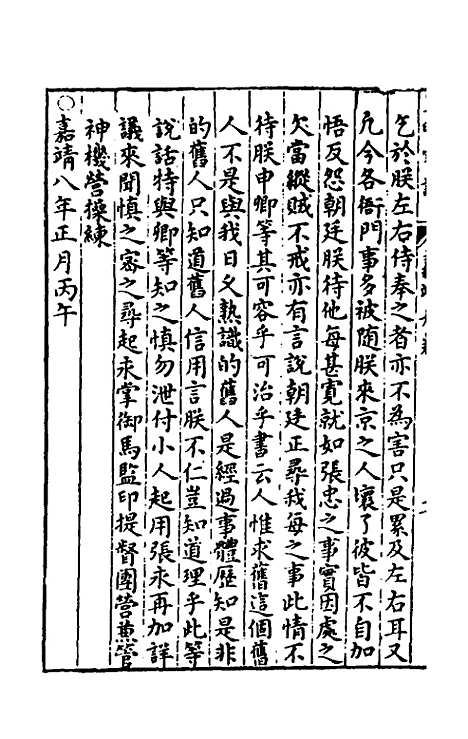 乞於朕左右侍奉之者亦不為害只是累及左右耳又
凢今各衙門事多被随朕來京之人壞了彼皆不自加
悟反怨朝廷朕待他每甚寛就如張忠之事實因處之
欠當縱賊不戒亦有言說朝廷正尋我每之事此情不
待朕申卿等其可容乎可治乎書云人惟求舊這個舊
人不是與我日久熟識的舊人是經過事體歷知是非
的舊人只知道舊人信用言朕不仁豈知道理乎此等
說話特與卿等知之慎勿泄付小人起用張永再加詳
議來聞慎之審之尋起永掌御馬監印提督團營兼管
神機營操練
○嘉靖八年正月丙午